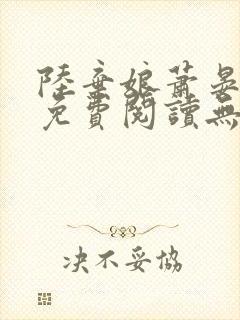 陸棄娘蕭晏
免費閱讀無
决不妥協